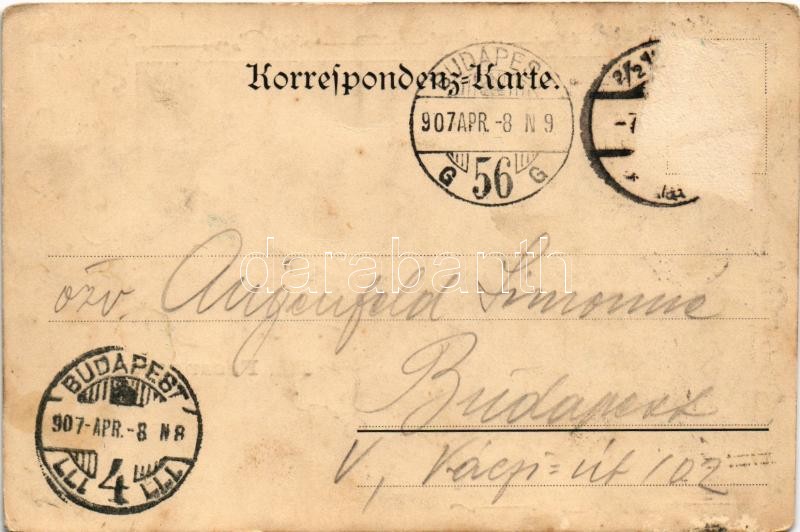 Korrespondenz-Karte.
BUDAPEST
907 APR.-8 N 9
G 56 G
-7
darabanth
özv. Augenfeld Simonné
Budapest
V, Váczi-út 102
BUDAPEST
907-APR.-8 N8
4